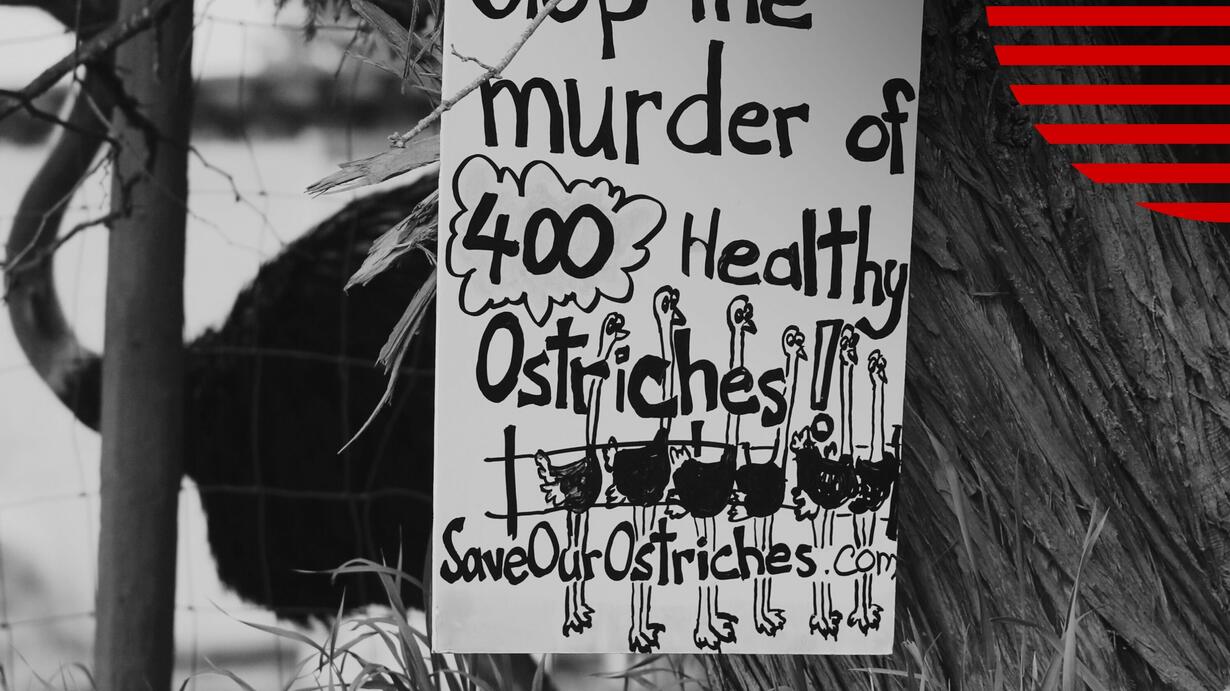 Stop the
murder of
400 Healthy
Ostriches!
SaveOurOstriches.com